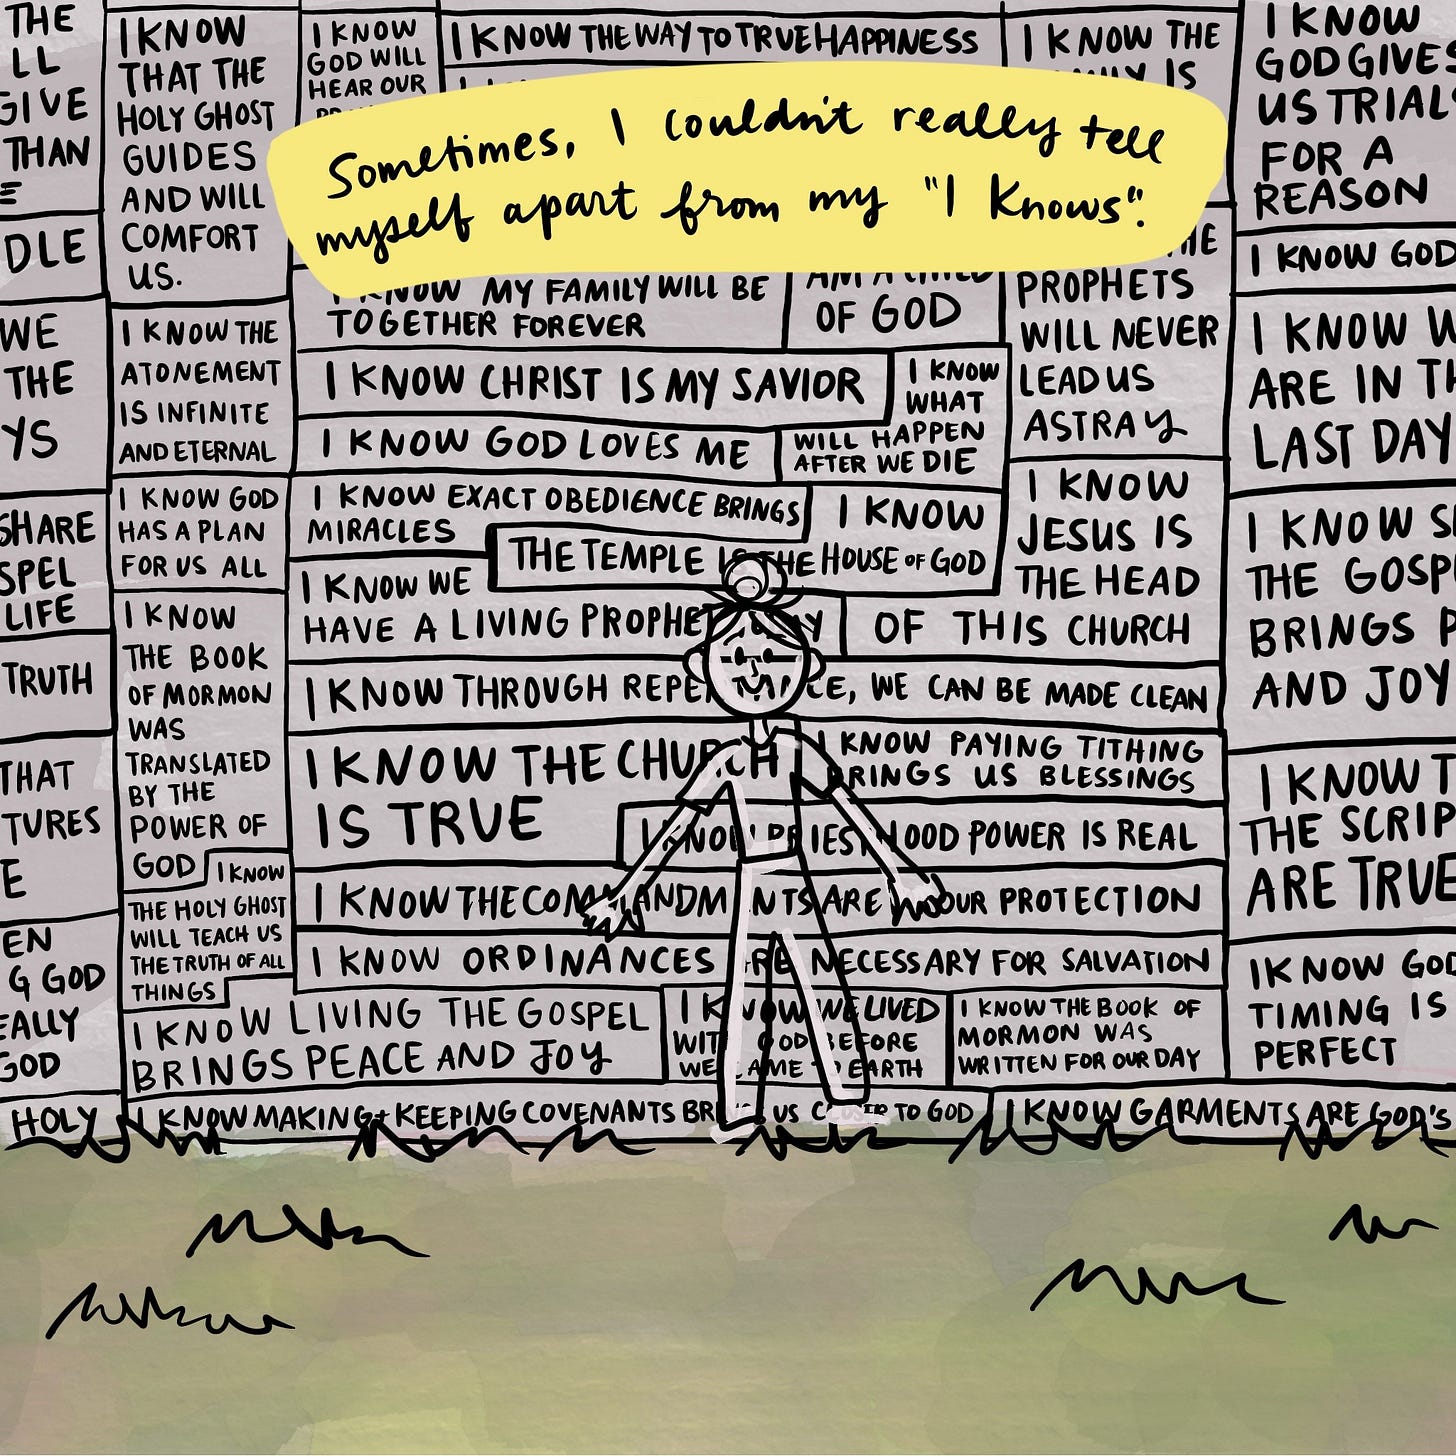 Sometimes, I couldn't really tell
myself apart from my "I Knows".
THE
LL
GIVE
THAN
DLE
WE
THE
YS
SHARE
SPEL
LIFE
TRUTH
THAT
TURES
E
EN
G GOD
EALLY
GOD
HOLY
I KNOW
THAT THE
HOLY GHOST
GUIDES
AND WILL
COMFORT
US.
I KNOW THE
ATONEMENT
IS INFINITE
AND ETERNAL
I KNOW GOD
HAS A PLAN
FOR US ALL
I KNOW
THE BOOK
OF MORMON
WAS
TRANSLATED
BY THE
POWER OF
GOD
I KNOW
THE HOLY GHOST
WILL TEACH US
THE TRUTH OF ALL
THINGS
I KNOW
GOD WILL
HEAR OUR
I KNOW THE WAY TO TRUE HAPPINESS
I KNOW MY FAMILY WILL BE
TOGETHER FOREVER
AM A CHILD
OF GOD
I KNOW CHRIST IS MY SAVIOR
I KNOW
WHAT
WILL HAPPEN
AFTER WE DIE
I KNOW GOD LOVES ME
I KNOW EXACT OBEDIENCE BRINGS
MIRACLES
I KNOW
THE TEMPLE IS THE HOUSE OF GOD
I KNOW WE
HAVE A LIVING PROPHET TODAY
I KNOW THE
FAMILY IS
THE
PROPHETS
WILL NEVER
LEAD US
ASTRAY
I KNOW
JESUS IS
THE HEAD
OF THIS CHURCH
I KNOW THROUGH REPENTANCE, WE CAN BE MADE CLEAN
I KNOW THE CHURCH
IS TRUE
I KNOW PAYING TITHING
BRINGS US BLESSINGS
I KNOW PRIESTHOOD POWER IS REAL
I KNOW THE COMMANDMENTS ARE FOR OUR PROTECTION
I KNOW ORDINANCES ARE NECESSARY FOR SALVATION
I KNOW LIVING THE GOSPEL
BRINGS PEACE AND JOY
I KNOW WE LIVED
WITH GOD BEFORE
WE CAME TO EARTH
I KNOW THE BOOK OF
MORMON WAS
WRITTEN FOR OUR DAY
I KNOW MAKING + KEEPING COVENANTS BRINGS US CLOSER TO GOD
I KNOW GARMENTS ARE GOD'S
I KNOW
GOD GIVES
US TRIALS
FOR A
REASON
I KNOW GOD
I KNOW W
ARE IN TH
LAST DAY
I KNOW S
THE GOSP
BRINGS P
AND JOY
I KNOW T
THE SCRIP
ARE TRUE
I KNOW GOD
TIMING IS
PERFECT